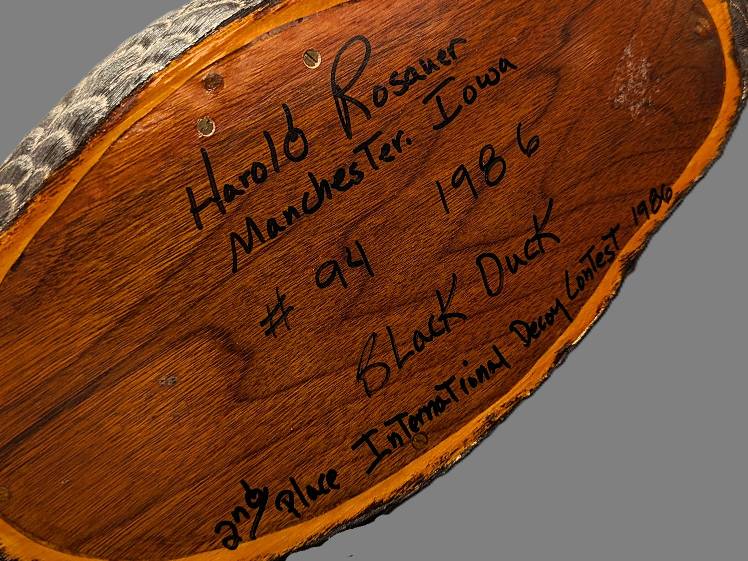 Harold Rosauer
Manchester. Iowa
# 94 1986
Black Duck
2nd Place International Decoy Contest 1986